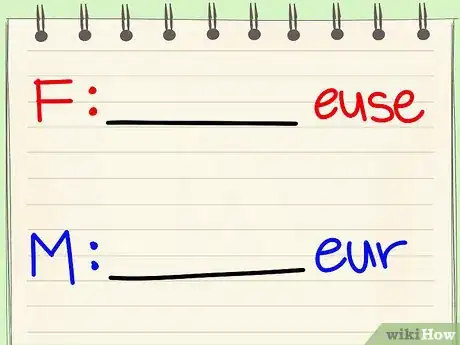 F: __________ euse
M: __________ eur
wikiHow